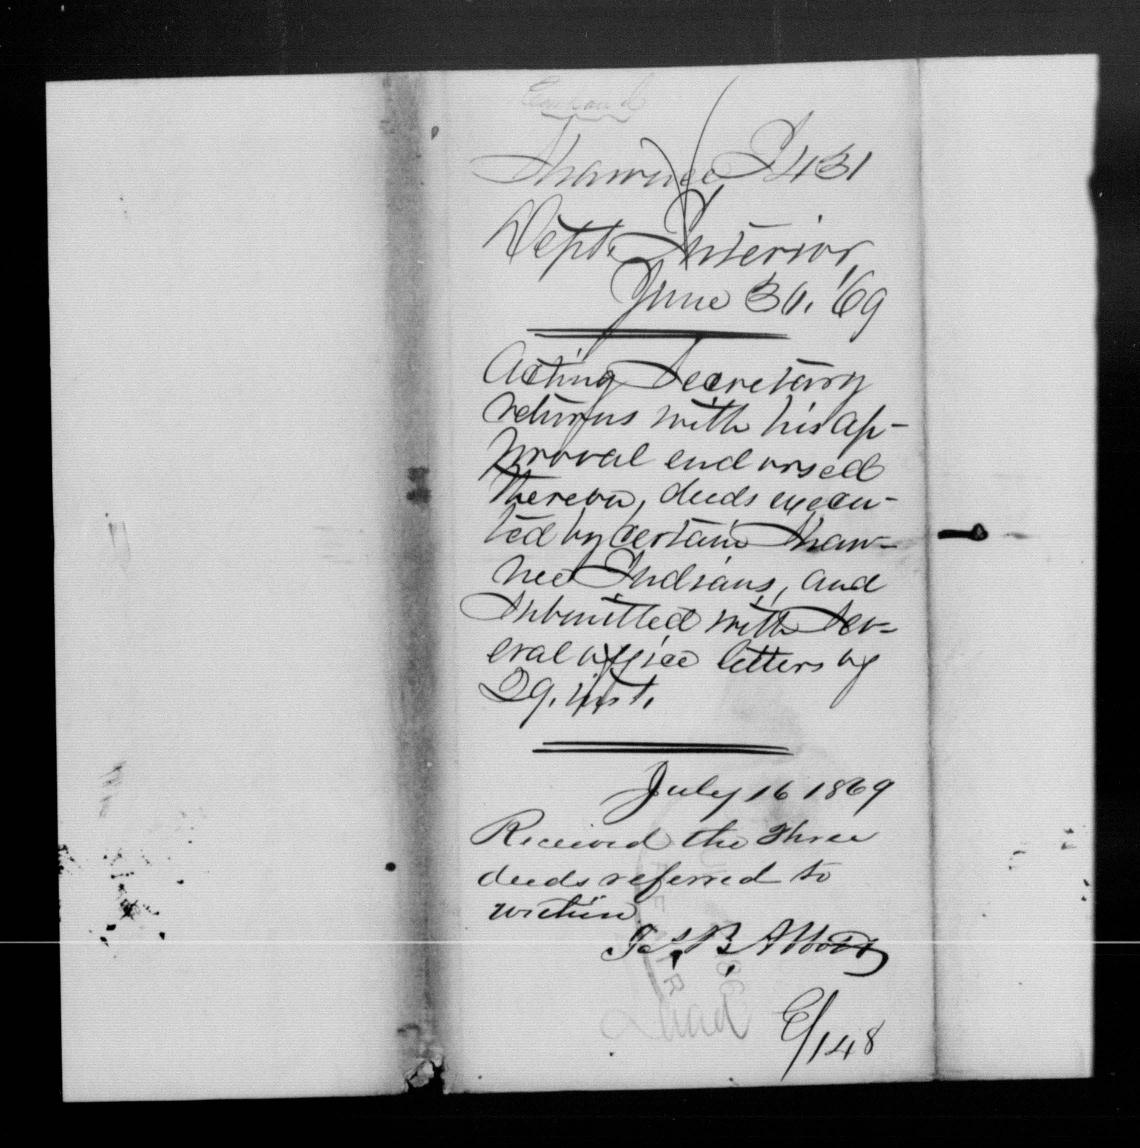 Shawnee I431
Dept. Interior,
June 30, '69
Acting Secretary
returns with his ap-
proval endorsed
thereon, deeds execu-
ted by certain Shaw-
nee Indians, and
submitted with sev-
eral office letters of
29. inst.
July 16 1869
Received the three
deeds referred to
within
Jas. B Abbott
E/148